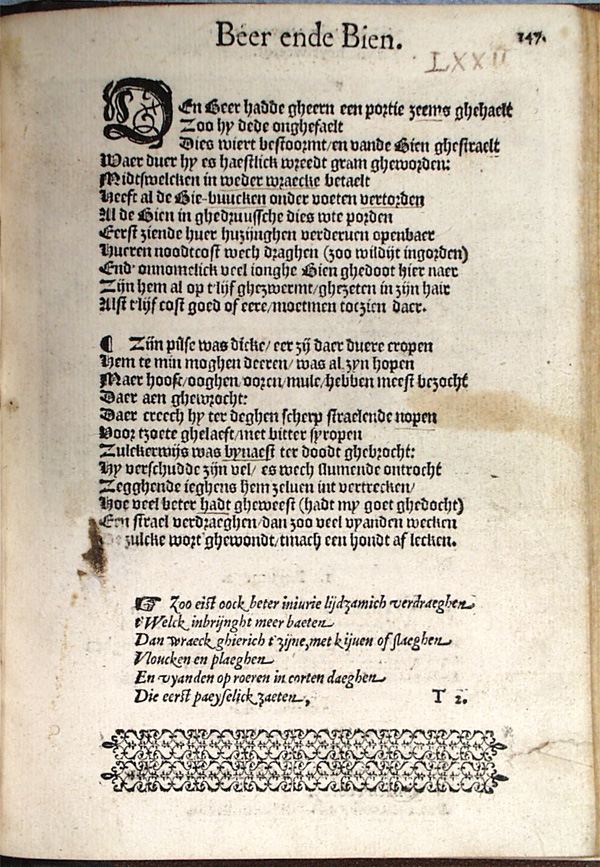 Beer ende Bien. 147.
LXXII
DEn Beer hadde gheern een portie zeems ghehaelt
Zoo hy dede onghefaelt
Dies wiert bestoormt/en vande Bien ghestraelt
Waer duer hy es haestlick wreedt gram gheworden:
Midtswelcken in weder wraecke betaelt
Heeft al de Bie-buucken onder voeten vertorden
Al de Bien in ghedruussche dies wte porden
Eerst ziende huer huzijnghen verderuen openbaer
Hueren noodtcost wech draghen (zoo wildijt ingorden)
End' onnomelick veel ionghe Bien ghedoot hier naer
Zijn hem al op t'lijf ghezwermt/ghezeten in zijn hair
Alst t'lijf cost goed of eere/moetmen toezien daer.
¶ Zijn pilse was dicke/ eer zij daer duere cropen
Hem te min moghen deeren/ was al zyn hopen
Maer hooft/ooghen/ooren/mule/hebben meest bezocht
Daer aen ghewrocht:
Daer creech hy ter deghen scherp straelende nopen
Voor tzoete ghelaest/met bitter syropen
Zulckerwijs was bynaest ter doodt ghebrocht:
Hy verschudde zijn vel/ es wech slumende ontrocht
Zegghende ieghens hem zeluen int vertrecken/
Hoe veel beter hadt gheweest (hadt my goet ghedocht)
Een strael verdraeghen/dan zoo veel vyanden wecken
zulcke wort ghewondt/tmach een hondt af lecken.
☞ Zoo eist oock beter iniurie lijdzamich verdraeghen
t'Welck inbrijnght meer baeten
Dan wraeck ghierich t'zijne,met kijuen of slaeghen
Vloucken en plaeghen
En vyanden op roeren in corten daeghen
Die eerst paeyselick zaeten, T 2.